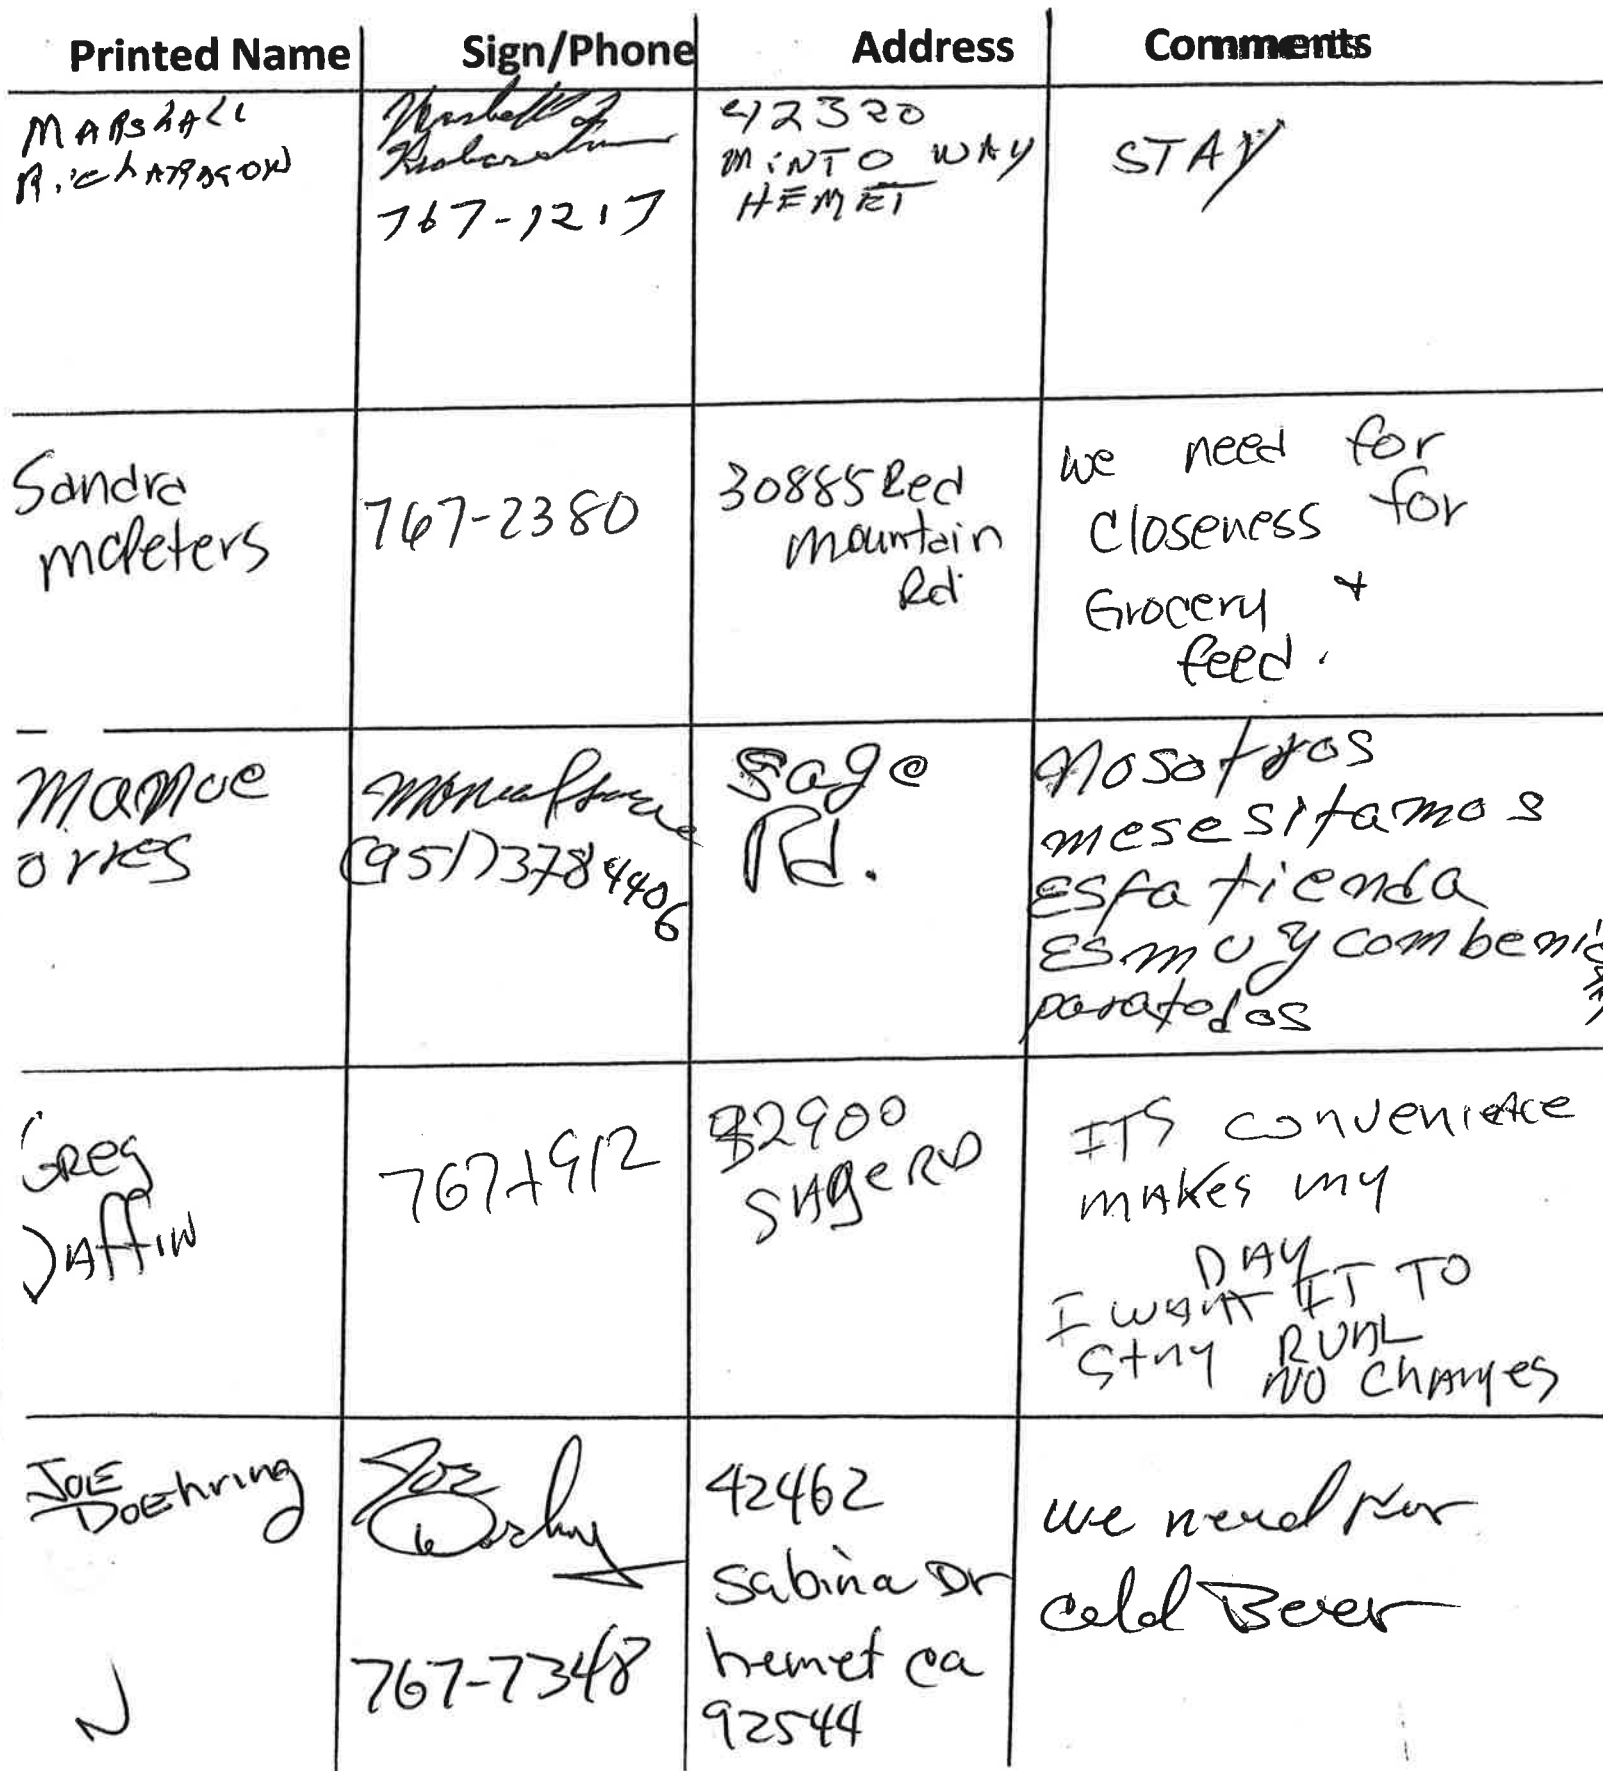 Printed Name Sign/Phone Address Comments
MARSHALL
RichARDSON
767-1217
42320
MINTO WAY
HEMET
STAY
Sandra
mcPeters
767-2380
30885 Red
mountain
Rd
we need for
closeness for
Grocery +
feed.
Manoe
orres
(951)3784406
Sage
Rd.
Nosotros
mesesitamos
Esta tienda
ES muy combeni
para todos
Greg
Jaffin
767-1912
32900
SAge RD
ITS convenience
makes my
DAY
I WANT IT TO
stay RURL
NO ChANgES
JOE
DOEhring
Joe
767-7348
42462
Sabina Dr
hemet ca
92544
we need for
cold Beer